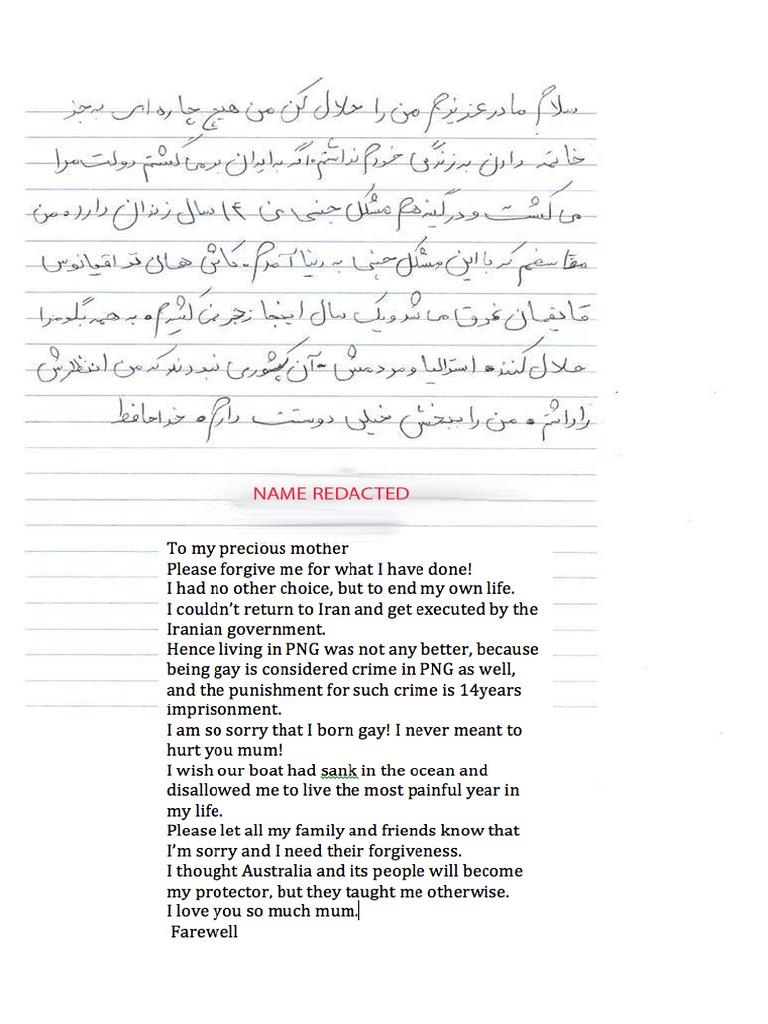 سلام مادر عزیزم من را حلال کن من هیچ چاره ای به جز
خاتمه دادن به زندگی خودم نداشتم. اگه به ایران برمی گشتم دولت مرا
می کشت و در گینه هم مشکل جنسی ۱۴ سال زندان دارد. من
متاسفم که با این مشکل جنسی به دنیا آمدم. کاش همان تو اقیانوس
قایقمان غرق می شد و یک سال اینجا زجر نمی کشیدم. به همه بگو مرا
حلال کنند. استرالیا و مردمش آن کشوری نبودند که من انتظارش
را داشتم. من را ببخش خیلی دوستت دارم. خداحافظ
NAME REDACTED
To my precious mother
Please forgive me for what I have done!
I had no other choice, but to end my own life.
I couldn't return to Iran and get executed by the
Iranian government.
Hence living in PNG was not any better, because
being gay is considered crime in PNG as well,
and the punishment for such crime is 14years
imprisonment.
I am so sorry that I born gay! I never meant to
hurt you mum!
I wish our boat had sank in the ocean and
disallowed me to live the most painful year in
my life.
Please let all my family and friends know that
I'm sorry and I need their forgiveness.
I thought Australia and its people will become
my protector, but they taught me otherwise.
I love you so much mum.
Farewell